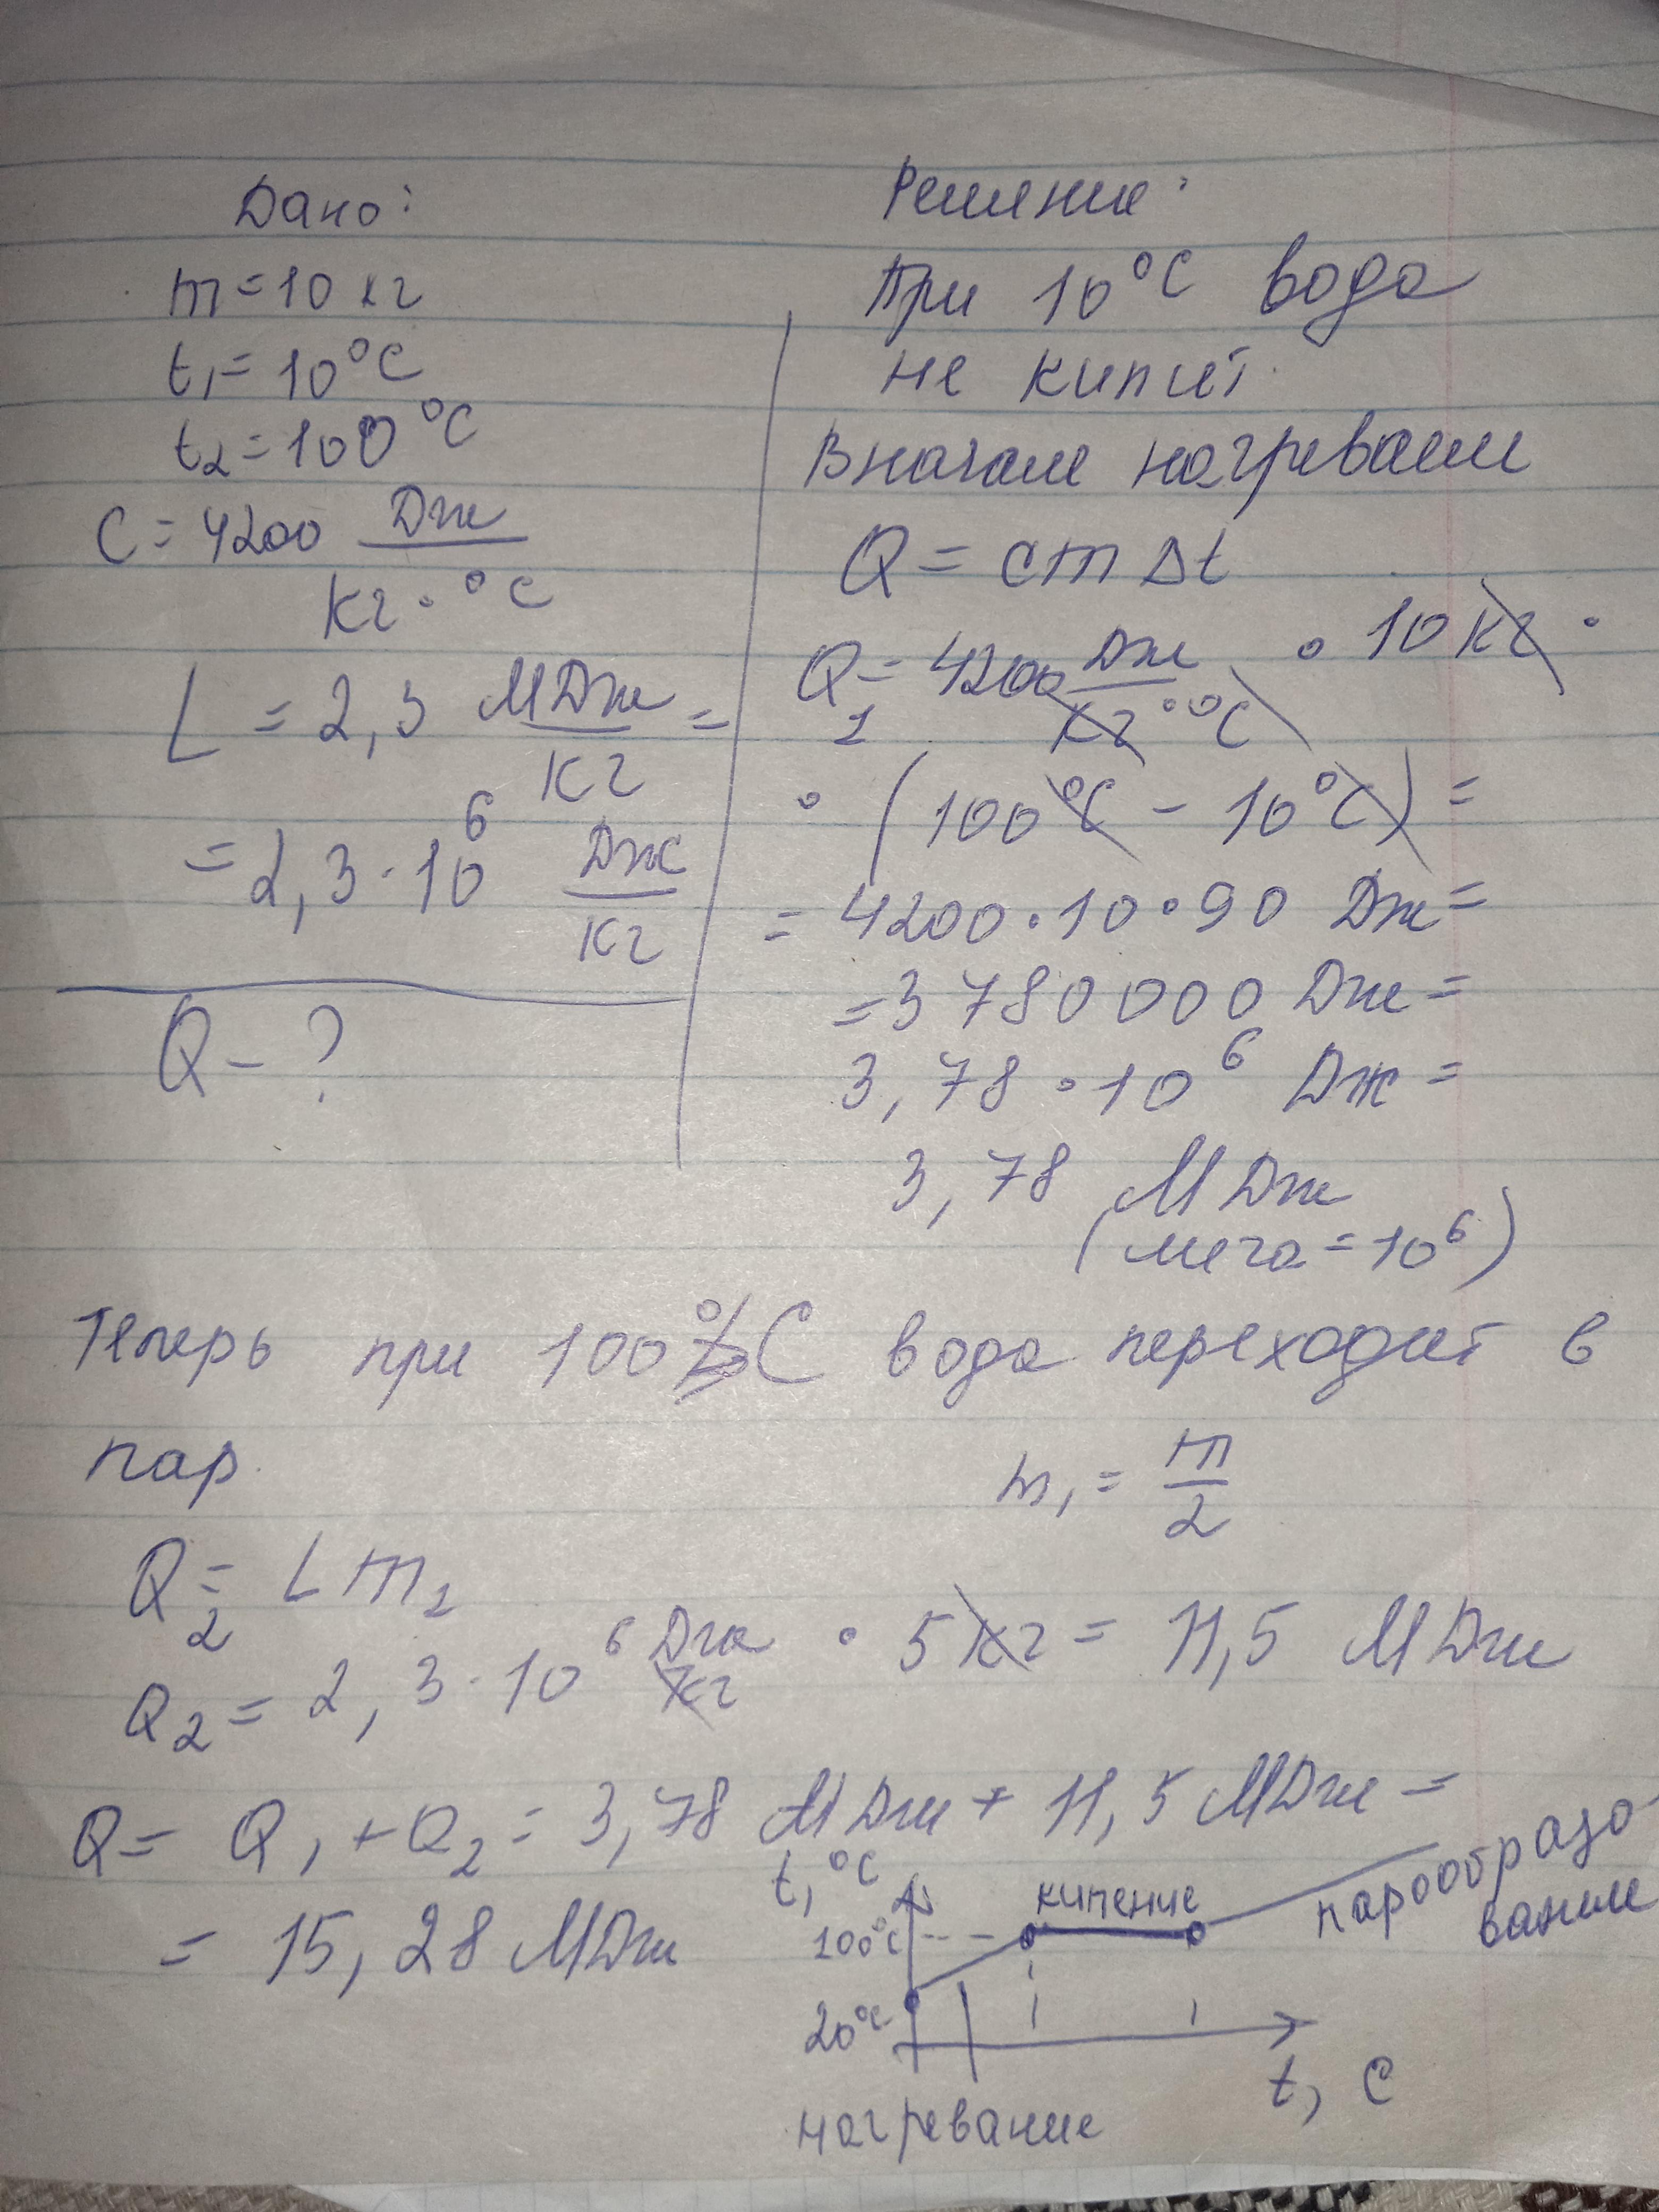 Дано:
m = 10 кг
t₁ = 10°C
t₂ = 100°C
C = 4200 Дж
кг · °C
L = 2,3 МДж =
кг
= 2,3 · 10⁶ Дж
кг
Q - ?
Решение:
При 10°C вода
не кипит.
Вначале нагреваем
Q = cm Δt
Q₁ = 4200 Дж · 10 кг ·
кг · °C
· (100°C - 10°C) =
= 4200 · 10 · 90 Дж =
= 3780000 Дж =
3,78 · 10⁶ Дж =
3,78 МДж
(мега = 10⁶)
Теперь при 100°C вода переходит в
пар.
m₁ = m
2
Q₂ = L m₂
Q₂ = 2,3 · 10⁶ Дж · 5 кг = 11,5 МДж
кг
Q = Q₁ + Q₂ = 3,78 МДж + 11,5 МДж =
= 15,28 МДж
t, °C
100°C
20°C
кипение
парообразо
вание
t, C
нагревание